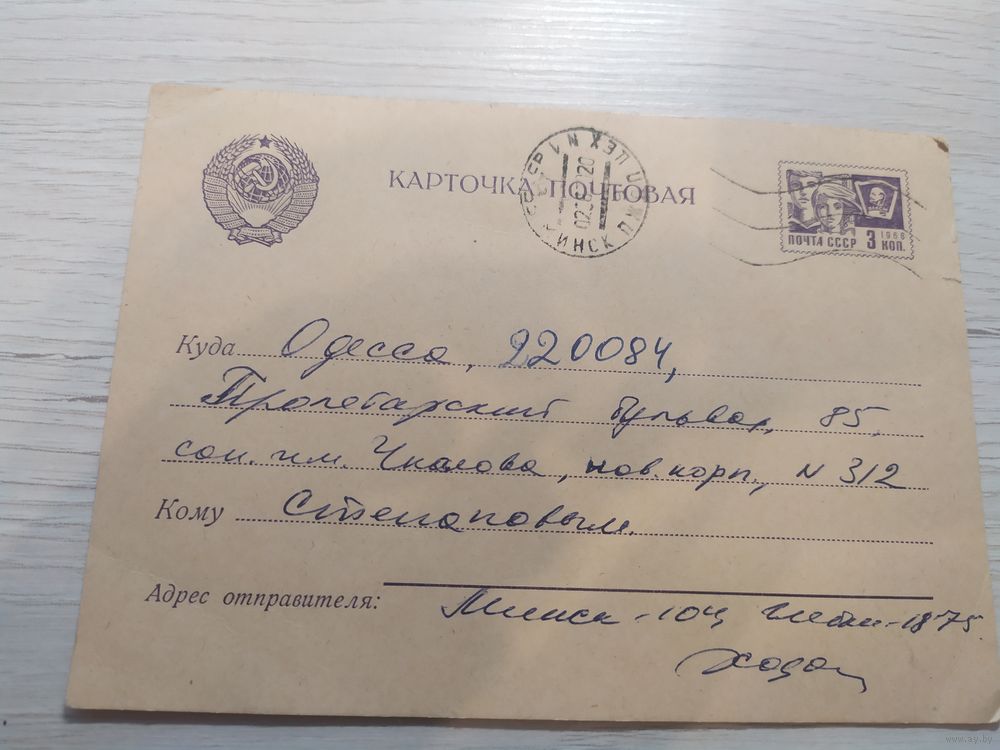 КАРТОЧКА ПОЧТОВАЯ
МИНСК ПЖДП ЦЕХ N 1
ПОЧТА СССР 3 КОП.
1966
Куда Одесса, 220084,
Пролетарский бульвар, 85.
сан. им. Чкалова, нов. корп., N 312
Кому Степановым.
Адрес отправителя: Минск-104
www.ay.by